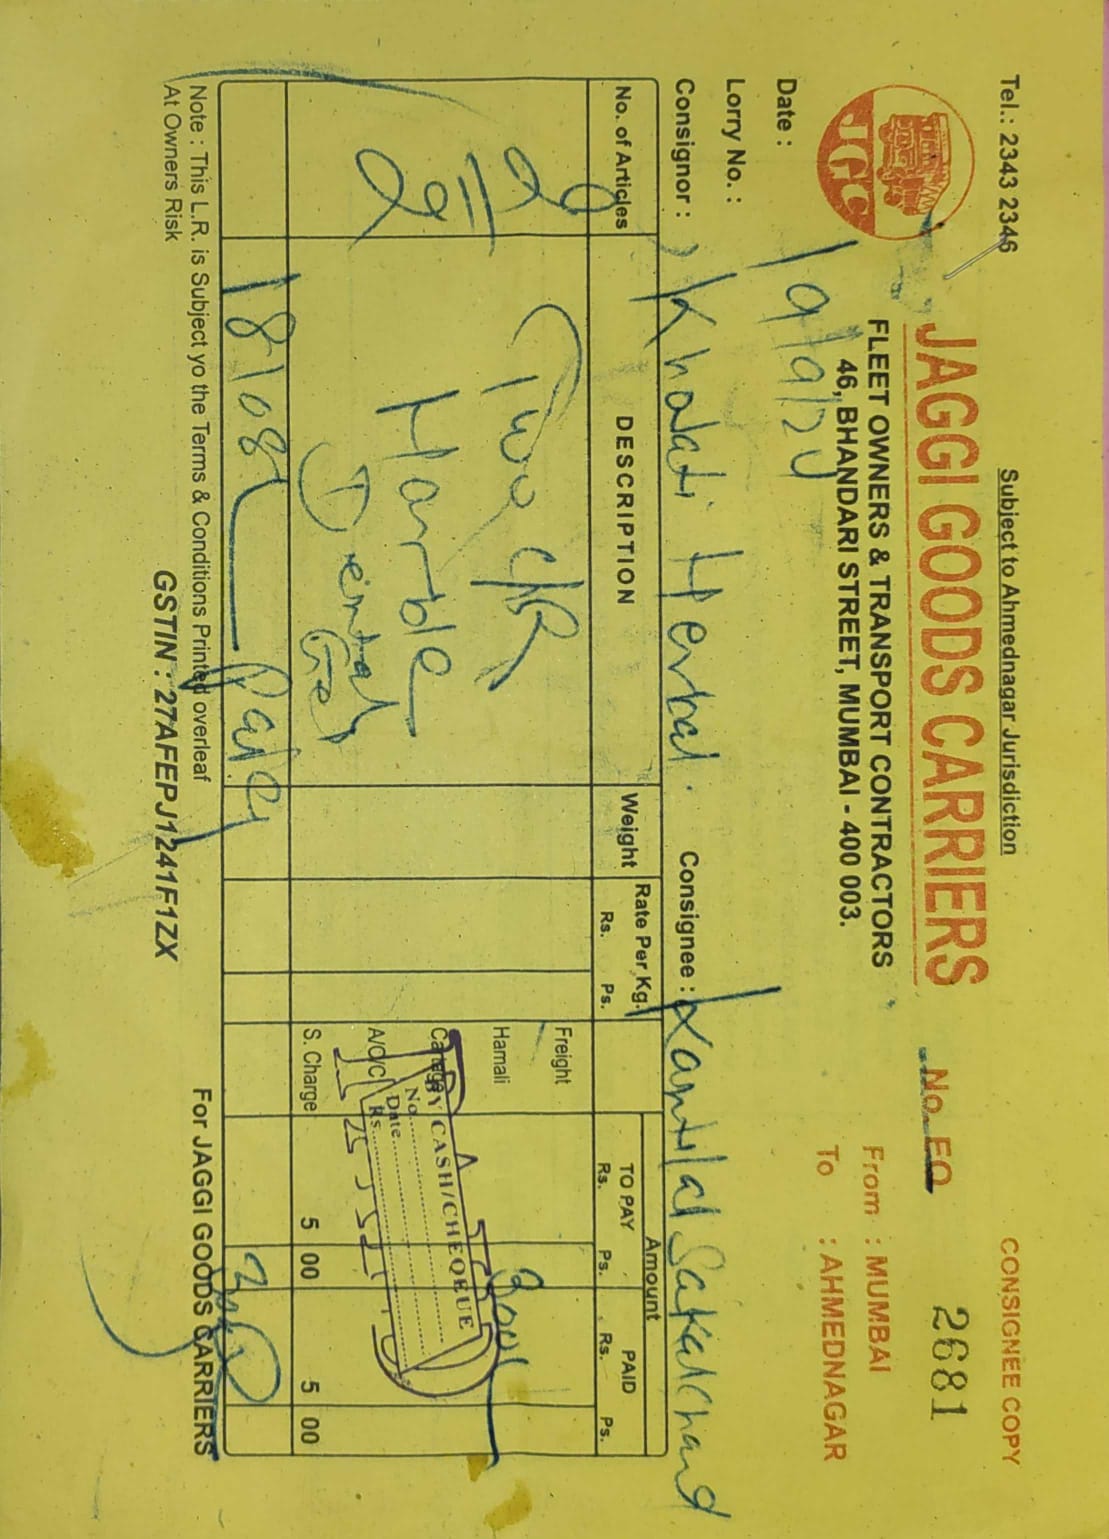 Tel.: 2343 2346
Subject to Ahmednagar Jurisdiction
CONSIGNEE COPY
JCC
JAGGI GOODS CARRIERS
No. EO 2681
FLEET OWNERS & TRANSPORT CONTRACTORS
46, BHANDARI STREET, MUMBAI - 400 003.
From : MUMBAI
To : AHMEDNAGAR
Date : 19/9/24
Lorry No. :
Consignor : Khadi Herbal. Consignee : Kantilal Sakalchand
No. of Articles DESCRIPTION Weight Rate Per Kg. Amount
Rs. Ps. TO PAY PAID
Rs. Ps. Rs. Ps.
Two
Freight
Hamali 300
Harble
BY CASH/CHEQEUE
No.
Date
Rs.
A/C/C
Dental
Gel
S. Charge 5 00 5 00
Note : This L.R. is Subject yo the Terms & Conditions Printed overleaf
At Owners Risk
For JAGGI GOODS CARRIERS
GSTIN : 27AFEPJ1241F1ZX